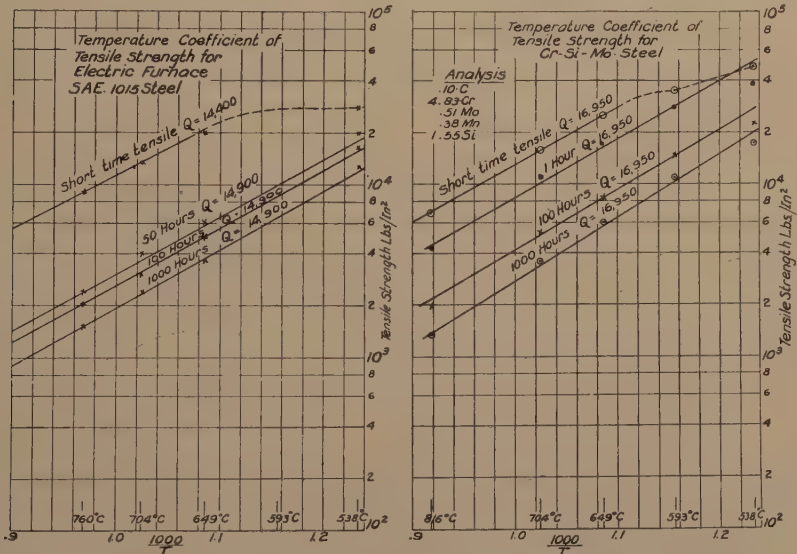 Temperature Coefficient of
Tensile Strength for
Electric Furnace
SAE. 1015 Steel
Short time tensile Q = 14,400
50 Hours Q = 14,900
100 Hours Q = 14,900
1000 Hours Q = 14,900
10⁵
8
6
4
2
10⁴
8
6
4
2
10³
8
6
4
2
10²
Tensile Strength Lbs/In²
760°C 704°C 649°C 593°C 538°C
.9 1.0 1.1 1.2
1000
T
Temperature Coefficient of
Tensile Strength for
Cr-Si-Mo Steel
Analysis
.10 C
4.83 Cr
.51 Mo
.38 Mn
1.55 Si
Short time tensile Q = 16,950
1 Hour Q = 16,950
100 Hours Q = 16,950
1000 Hours Q = 16,950
10⁵
8
6
4
2
10⁴
8
6
4
2
10³
8
6
4
2
10²
Tensile Strength Lbs/In²
816°C 704°C 649°C 593°C 538°C
.9 1.0 1.1 1.2
1000
T